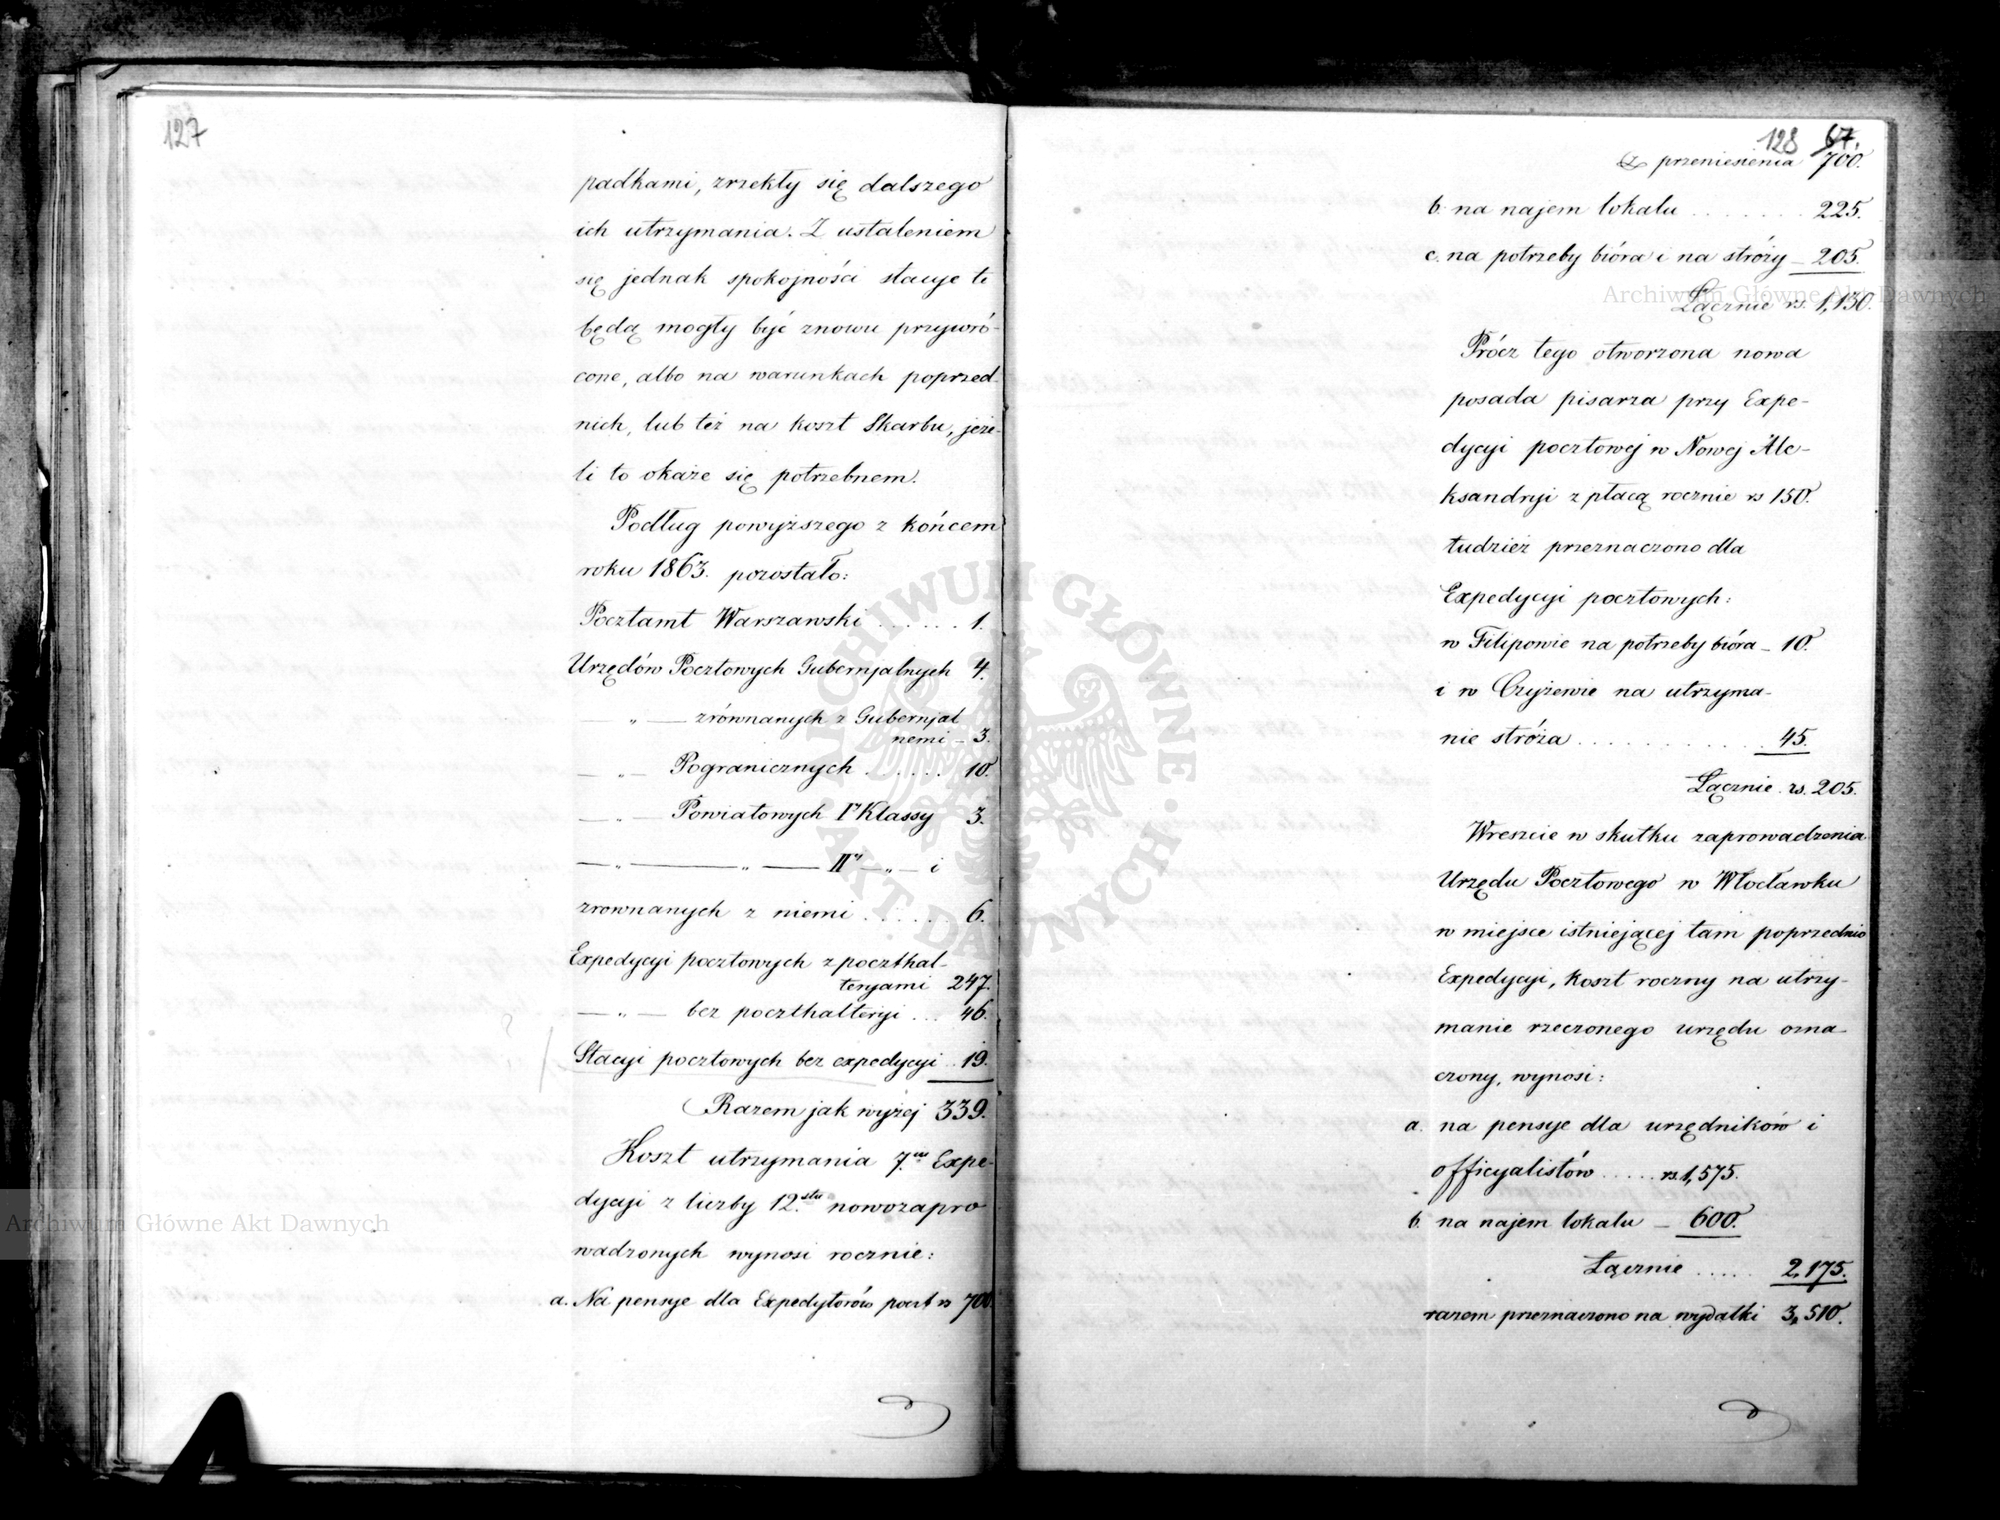 127
padkami, zrzekły się dalszego
ich utrzymania. Z ustaleniem
się jednak spokojności stacye te
będą mogły być znowu przywró-
cone, albo na warunkach poprzed-
nich, lub też na koszt Skarbu, jeże-
li to okaże się potrzebnem.
Podług powyższego z końcem
roku 1863. pozostało:
Pocztamt Warszawski . . . . . . 1.
Urzędów Pocztowych Gubernjalnych 4.
— „ — zrównanych z Gubernjal
nemi — 3.
— „ — Pogranicznych . . . . . . 10.
— „ — Powiatowych Iéj Klassy 3.
— „ — „ — IIéj — „ — i
zrównanych z niemi . . . . . 6.
Expedycyi pocztowych z poczthal-
teryami 247.
— „ — bez poczthalteryi . . . 46.
Stacyi pocztowych bez expedycyi . . 19.
Razem jak wyżej 339.
Koszt utrzymania 7miu Expe-
dycyi z liczby 12stu nowozapro
wadzonych wynosi rocznie:
a. Na pensye dla Expedytorów poczt rs 700.
128 67.
Z przeniesienia 700.
b. na najem lokalu . . . . . . . 225.
c. na potrzeby bióra i na stróży — 205.
Łącznie rs. 1,130.
Prócz tego otworzona nowa
posada pisarza przy Expe-
dycyi pocztowej w Nowej Ale-
ksandryi z płacą rocznie rs 150.
tudzież przeznaczono dla
Expedycyi pocztowych:
w Filipowie na potrzeby bióra — 10.
i w Czyżewie na utrzyma-
nie stróża . . . . . . . . . . . . 45.
Łącznie rs. 205.
Wreszcie w skutku zaprowadzenia
Urzędu Pocztowego w Włocławku
w miejsce istniejącej tam poprzednio
Expedycyi, koszt roczny na utrzy-
manie rzeczonego urzędu ozna-
czony, wynosi:
a. na pensye dla urzędników i
officyalistów . . . . . rs. 1,575.
b. na najem lokalu — 600.
Łącznie . . . . . 2,175.
razem przeznaczono na wydatki 3,510.
Archiwum Główne Akt Dawnych
Archiwum Główne Akt Dawnych
ARCHIWUM GŁÓWNE AKT DAWNYCH